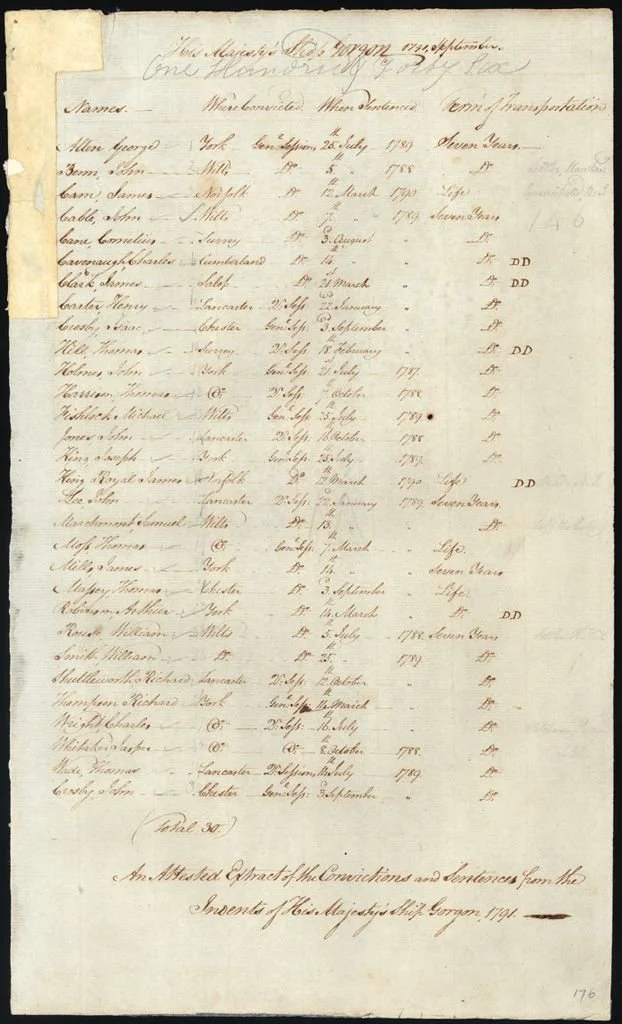 His Majesty's Ship Gorgon 1791, September.
One Hundred Forty Six
Names. Where Convicted. When Sentenced Term of Transportation
Allen George York Genl. Sessions 25th July 1789 Seven Years.
Benn, John Wilts Do. 5th " 1788 Do.
Cam, James Norfolk Do. 12th March 1790 Life
Cable, John Wilts Do. 7th " 1789 Seven Years
146
Cane Cornelius Surrey Do. 3d August " Do.
Cavenaugh Charles Cumberland Do. 14th " " Do. DD
Clark, James Salop Do. 21st March " Do. DD
Carter Henry Lancaster Qr. Sess. 22d January " Do.
Crosby Isaac Chester Genl. Sess. 3d September " Do.
Hill, Thomas Surrey Qr. Sess. 18th February " Do. DD
Holmes John York Genl. Sess. 21st July 1787. Do.
Harrison Thomas Do. Qr. Sess. 7th October 1788. Do.
Fishlock Michael Wilts Genl. Sess. 25th July 1789 Do.
Jones John Lancaster Qr. Sess. 16th October 1788 Do.
King Joseph York Genl. Sess. 25th July 1789. Do.
King Royal James Norfolk Do. 12th March 1790 Life DD
Lee John Lancaster Qr. Sess. 22d January 1789 Seven Years.
Marchment, Samuel Wilts Do. 13th " " Do.
Moss Thomas Do. Genl. Sess. 7th March " Life.
Mills, James York Do. 14th " " Seven Years
Massey, Thomas Chester Do. 3d September " Life.
Robinson Arthur York Do. 14th March " Do. DD
Rouse William Wilts Do. 5th July 1788 Seven Years
Smith William Do. Do. 25th " 1789. Do.
Shuttleworth Richard Lancaster Qr. Sess. 12th October " Do.
Thompson Richard York Genl. Sess. 14th March " Do.
Wright Charles Do. Qr. Sess. 16th July " Do.
Whitaker Jasper Do. Do. 8th October 1788. Do.
Wade, Thomas Lancaster Qr. Sessions 14th July 1789. Do.
Crosby John Chester Genl. Sess. 3d September " Do.
(Total 30.)
An Attested Extract of the Convictions and Sentences from the
Indents of His Majesty's Ship Gorgon, 1791.
176